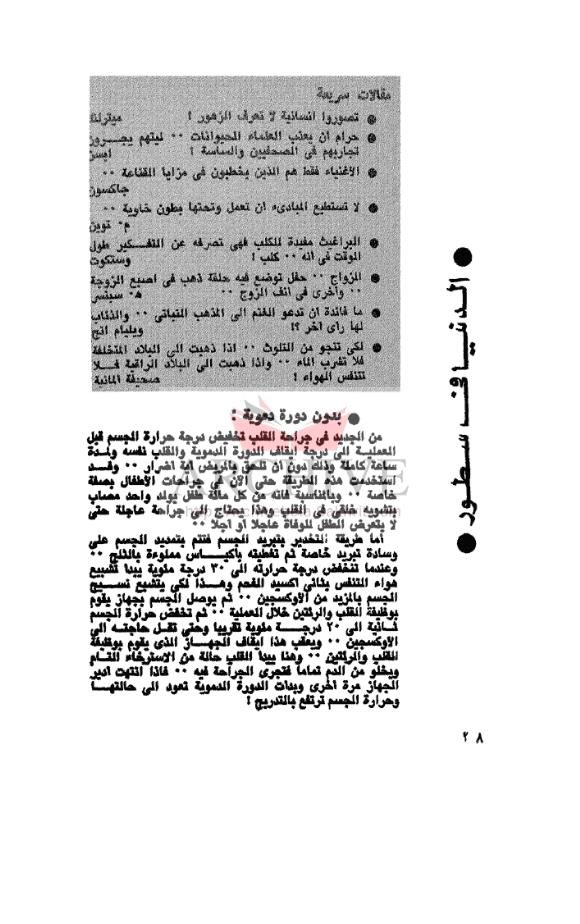 ● الدنيا في سطور ●
مقالات سريعة
● تصوروا انسانية لا تعرف الزهور ! ميترلنك
● حرام ان يعذب العلماء الحيوانات ٠٠ ليتهم يجـــرون
تجاربهم فى الصحفيين والساسة ! ابسن
● الأغنياء فقط هم الذين يخطبون فى مزايا القناعة ٠٠
جاكسون
● لا تستطيع المبادىء ان تعمل وتحتها بطون خاوية ٠٠
م٠ توين
● البراغيث مفيدة للكلب فهى تصرفه عن التفــكير طول
الوقت فى انه ٠٠ كلب ! وستكوت
● الزواج ٠٠ حفل توضع فيه حلقة ذهب فى اصبع الزوجة
٠٠ وأخرى فى انف الزوج ٠٠ ه٠ سبنسر
● ما فائدة ان تدعو الغنم الى المذهب النباتى ٠٠ والذئاب
لها راى آخر ؟! ويليام انج
● لكى تنجو من التلوث ٠٠ اذا ذهبت الى البلاد المتخلفة
فلا تشرب الماء ٠٠ واذا ذهبت الى البلاد الراقية فـــلا
تتنفس الهواء ! صحيفة المانية
● بدون دورة دموية :
من الجديد فى جراحة القلب تخفيض درجة حرارة الجسم قبل
العمليــة الى درجة ايقاف الدورة الدموية والقلب نفسه ولمدة
ساعة كاملة وذلك دون ان تلحق بالمريض اية اضرار ٠٠ وقــد
استخدمت هذه الطريقة حتى الآن فى جراحات الأطفال بصفة
خاصة ٠٠ وبالمناسبة فانه من كل مائة طفل يولد واحد مصاب
بتشويه خلقى فى القلب وهذا يحتاج الى جراحة عاجلة حتى
لا يتعرض الطفل للوفاة عاجلا او آجلا ٠٠
أما طريقة التخدير بتبريد الجسم فتتم بتمديد الجسم على
وسادة تبريد خاصة ثم تغطيته بأكيــاس مملوءة بالثلج ٠٠
وعندما تنخفض درجة حرارته الى ٣٠ درجة مئوية يبدا تشبيع
هواء التنفس بثانى اكسيد الفحم وهـــذا لكى يتشبع نســـيج
الجسم بالمزيد من الأوكسجين ٠٠ ثم يوصل الجسم بجهاز يقوم
بوظيفة القلب والرئتين خلال العملية ٠٠ ثم تخفض حرارة الجسم
ثـانية الى ٢٠ درجـــة مئوية تقريبا وحتى تقــل حاجتــه الى
الأوكسجين ٠٠ ويعقب هذا ايقاف الجهــاز الذى يقوم بوظيفة
القلب والرئتين ٠٠ وهنا يبدا القلب حالة من الاسترخاء التــام
ويخلو من الدم تماما فتجرى الجراحة فيه ٠٠ فاذا انتهت ادير
الجهاز مرة اخرى وبدات الدورة الدموية تعود الى حالتهــا
وحرارة الجسم ترتفع بالتدريج !
ARCHIVE
٢٨